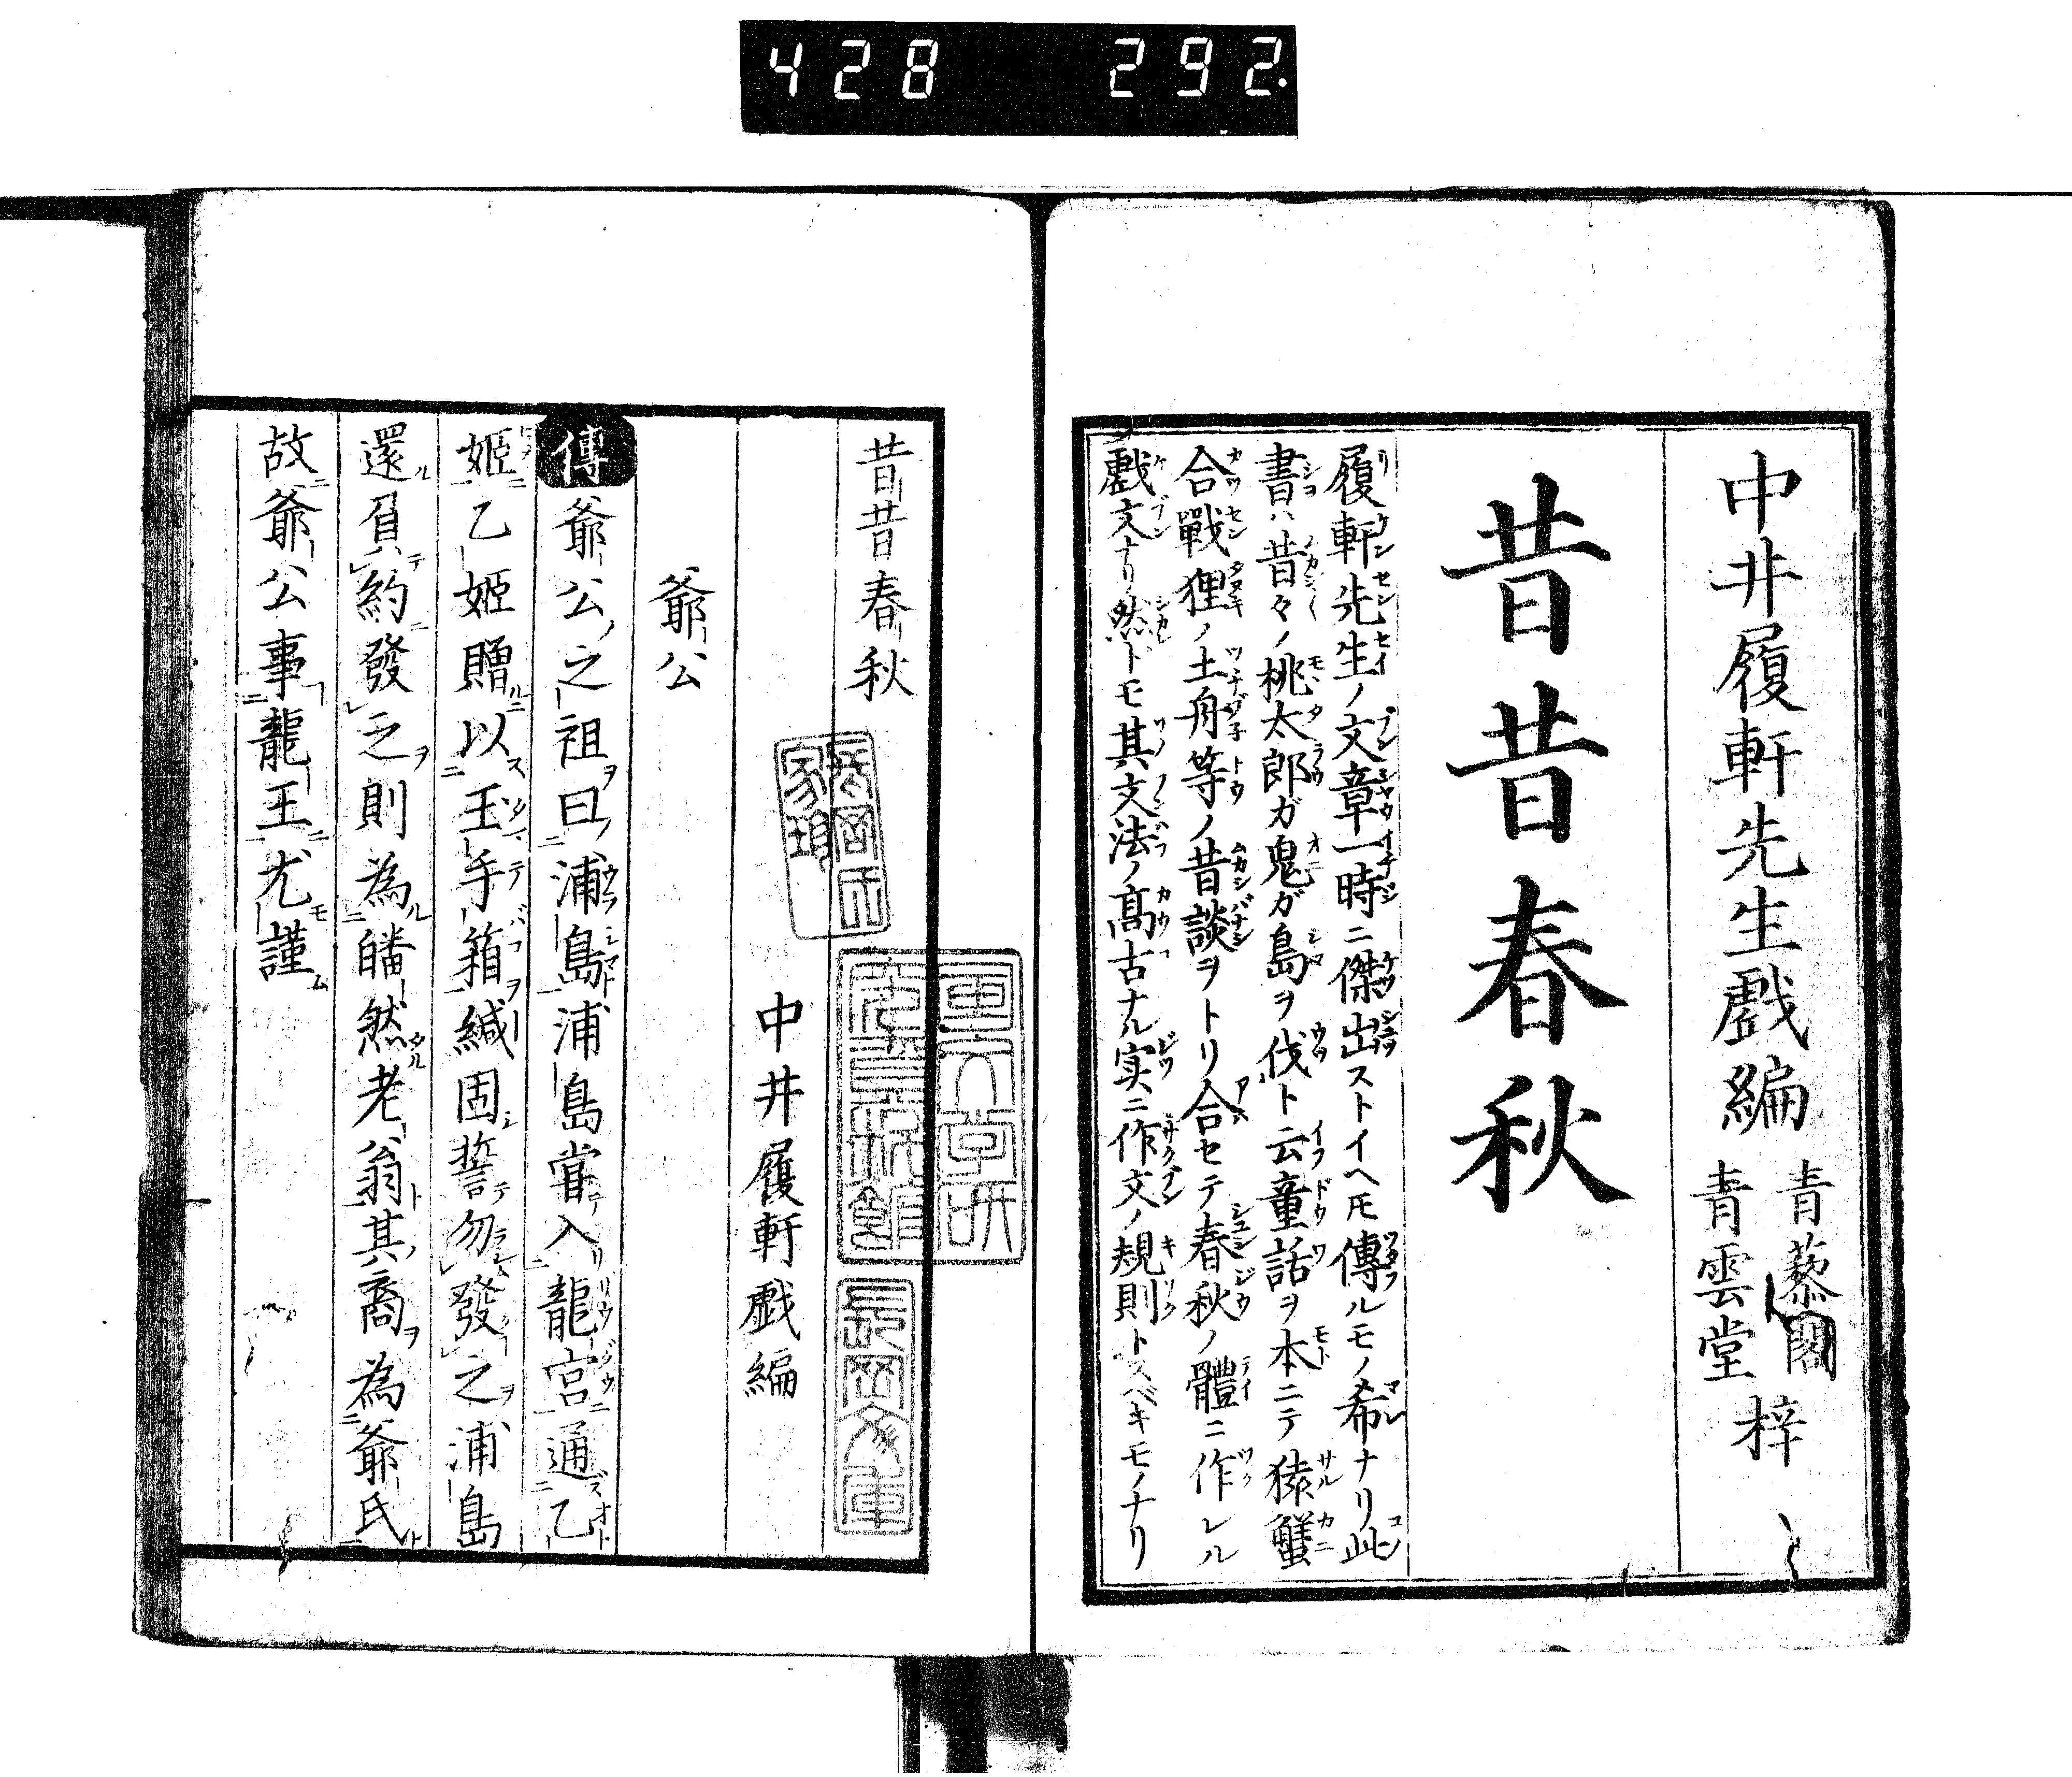 428 292.
中井履軒先生戯編
青藜閣
青雲堂
梓
昔昔春秋
履軒先生ノ文章一時ニ傑出ストイヘ𪜈傳ルモノ希ナリ此
書ハ昔々ノ桃太郎ガ鬼ガ島ヲ伐ト云童話ヲ本ニテ猿蟹
合戰狸ノ土舟等ノ昔談ヲトリ合セテ春秋ノ體ニ作レル
戯文ナリ然ドモ其文法ノ高古ナル実ニ作文ノ規則トスベキモノナリ
昔昔春秋
中井履軒戯編
爺公
傳爺公之祖曰浦島浦島甞入龍宮通乙
姬乙姬贈以玉手箱緘固誓勿發之浦島
還負約發之則為皤然老翁其裔為爺氏
故爺公事龍王尤謹